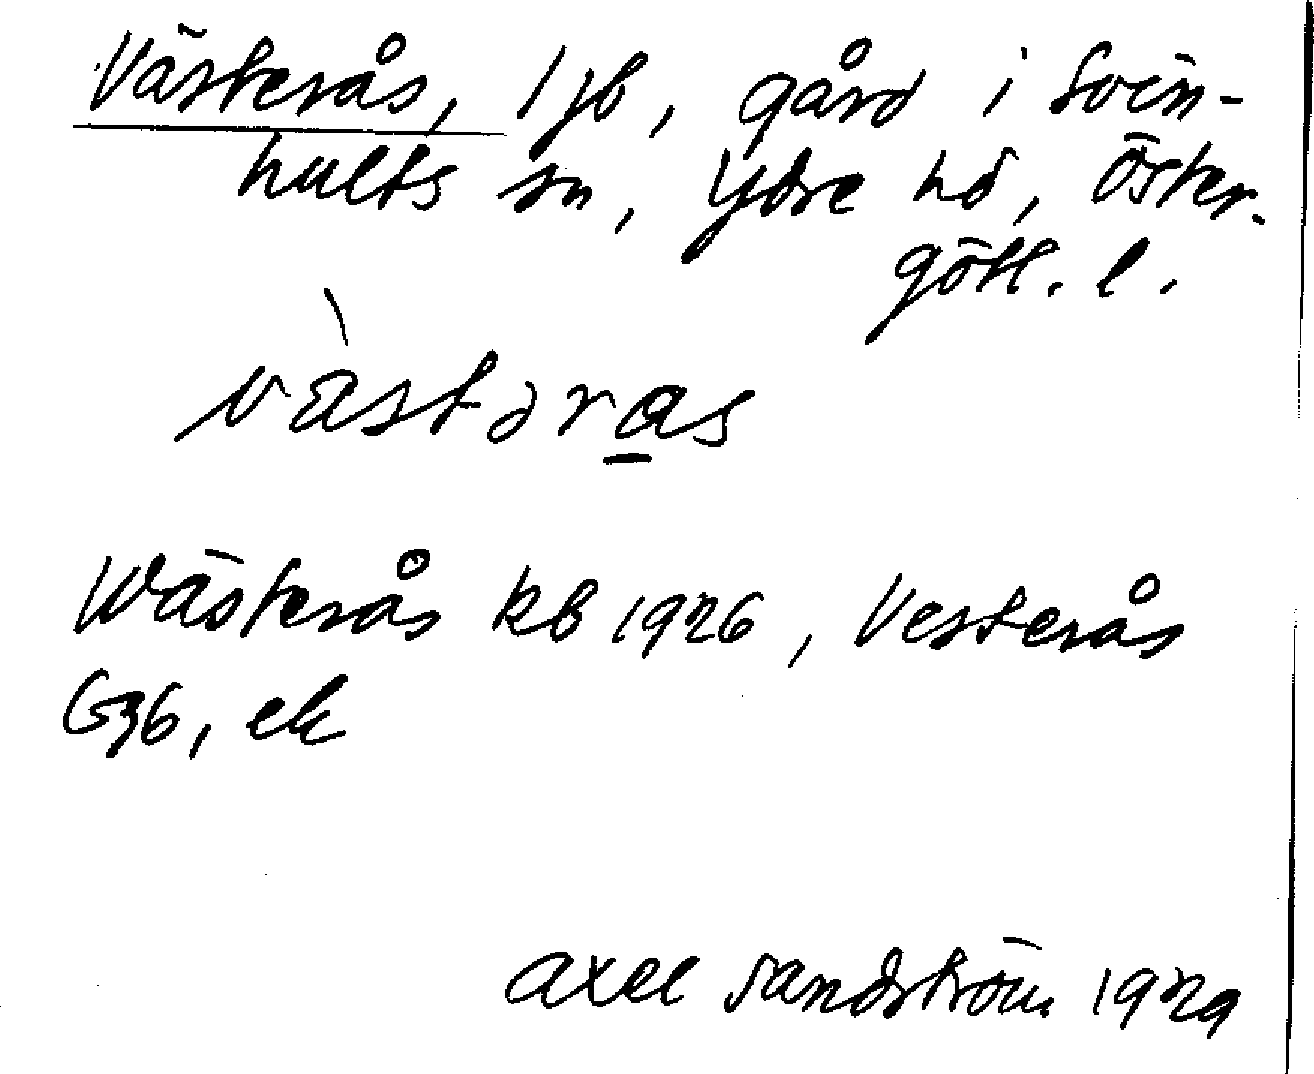 Västerås, 1 jb, gård i Svin-
hults sn, Ydre hd, Öster-
götl. l.
v̀ästəras
Wästerås kb 1926, Vesterås
G36, ek
Axel Sandström 1929